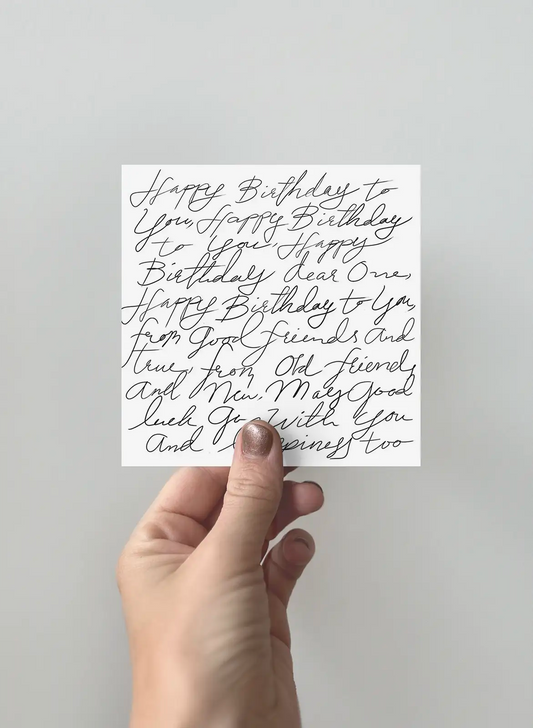 Happy Birthday to
You, Happy Birthday
to You, Happy
Birthday dear One,
Happy Birthday to You,
from Good friends And
true, from Old friends
And New. May Good
luck Go With You
And too